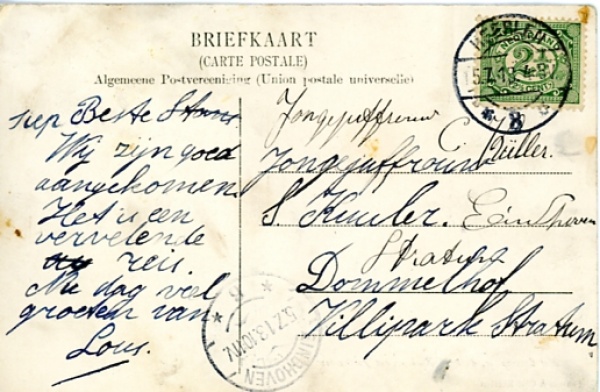 BRIEFKAART
(CARTE POSTALE)
Algemeene Postvereeniging (Union postale universelle)
Beste Stans
Wij zijn goed
aangekomen.
Het is een
vervelende
reis.
Nu dag veel
groeten van
Lous.
Jongejuffrouw
Müller.
Jongejuffrouw
S. Kuuler. Eindhoven
Stratum
Dommelhof
Villipark Stratum
NEDERLAND
2½
CENT
5.7.13
8
5.7.13.10-11V.
EINDHOVEN